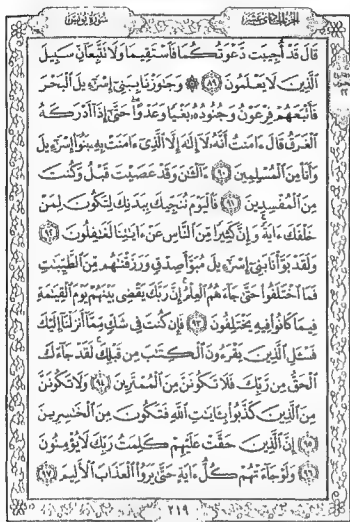 الجزء الحادي عشر
سورة يونس
قَالَ قَدْ أُجِيبَت دَّعْوَتُكُمَا فَاسْتَقِيمَا وَلَا تَتَّبِعَآنِّ سَبِيلَ
الَّذِينَ لَا يَعْلَمُونَ ﴿٨٩﴾ ۞ وَجَاوَزْنَا بِبَنِي إِسْرَٰٓءِيلَ الْبَحْرَ
فَأَتْبَعَهُمْ فِرْعَوْنُ وَجُنُودُهُ بَغْيًا وَعَدْوًا حَتَّىٰ إِذَا أَدْرَكَهُ
الْغَرَقُ قَالَ ءَامَنتُ أَنَّهُ لَا إِلَٰهَ إِلَّا الَّذِي ءَامَنَتْ بِهِ بَنُوا إِسْرَٰٓءِيلَ
وَأَنَا مِنَ الْمُسْلِمِينَ ﴿٩٠﴾ ءَآلْـَٰٔنَ وَقَدْ عَصَيْتَ قَبْلُ وَكُنتَ
مِنَ الْمُفْسِدِينَ ﴿٩١﴾ فَالْيَوْمَ نُنَجِّيكَ بِبَدَنِكَ لِتَكُونَ لِمَنْ
خَلْفَكَ ءَايَةً وَإِنَّ كَثِيرًا مِّنَ النَّاسِ عَنْ ءَايَٰتِنَا لَغَٰفِلُونَ ﴿٩٢﴾
وَلَقَدْ بَوَّأْنَا بَنِي إِسْرَٰٓءِيلَ مُبَوَّأَ صِدْقٍ وَرَزَقْنَٰهُم مِّنَ الطَّيِّبَٰتِ
فَمَا اخْتَلَفُوا حَتَّىٰ جَاءَهُمُ الْعِلْمُ إِنَّ رَبَّكَ يَقْضِي بَيْنَهُمْ يَوْمَ الْقِيَٰمَةِ
فِيمَا كَانُوا فِيهِ يَخْتَلِفُونَ ﴿٩٣﴾ فَإِن كُنتَ فِي شَكٍّ مِّمَّا أَنزَلْنَا إِلَيْكَ
فَسْـَٔلِ الَّذِينَ يَقْرَءُونَ الْكِتَٰبَ مِن قَبْلِكَ لَقَدْ جَاءَكَ
الْحَقُّ مِن رَّبِّكَ فَلَا تَكُونَنَّ مِنَ الْمُمْتَرِينَ ﴿٩٤﴾ وَلَا تَكُونَنَّ
مِنَ الَّذِينَ كَذَّبُوا بِـَٔايَٰتِ اللَّهِ فَتَكُونَ مِنَ الْخَٰسِرِينَ
﴿٩٥﴾ إِنَّ الَّذِينَ حَقَّتْ عَلَيْهِمْ كَلِمَتُ رَبِّكَ لَا يُؤْمِنُونَ
﴿٩٦﴾ وَلَوْ جَاءَتْهُمْ كُلُّ ءَايَةٍ حَتَّىٰ يَرَوُا الْعَذَابَ الْأَلِيمَ ﴿٩٧﴾
٢١٩